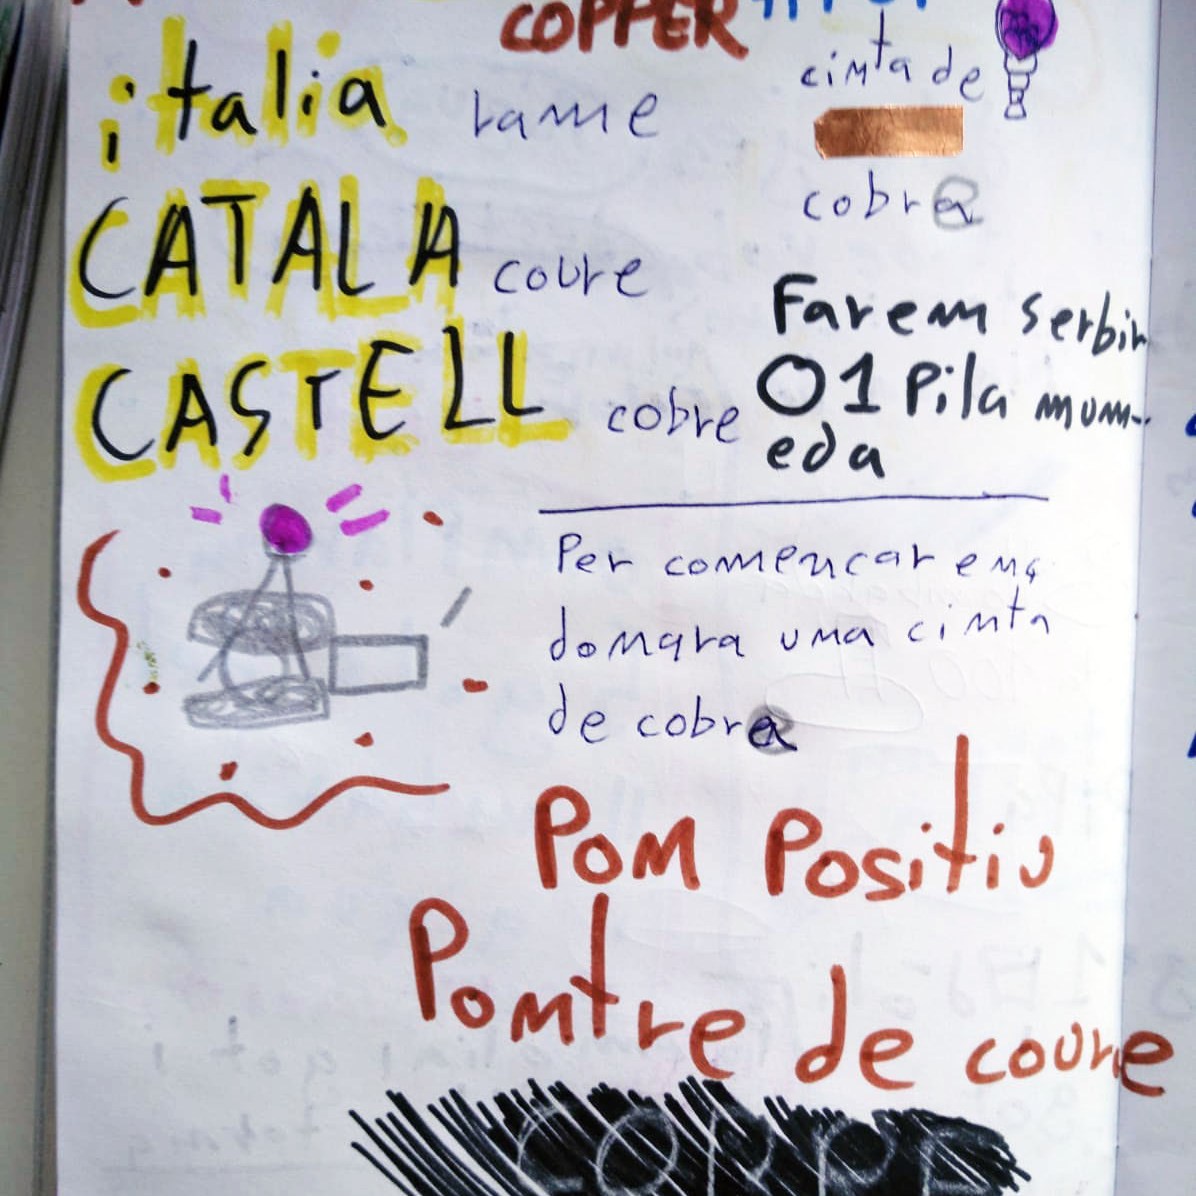 COPPER
italia rame
cinta de
cobra
CATALA coure
CASTELL cobre
Farem serbir
O1 Pila mum-
eda
Per començar ens
donara una cinta
de cobra
POM Positiu
Pomtre de coure